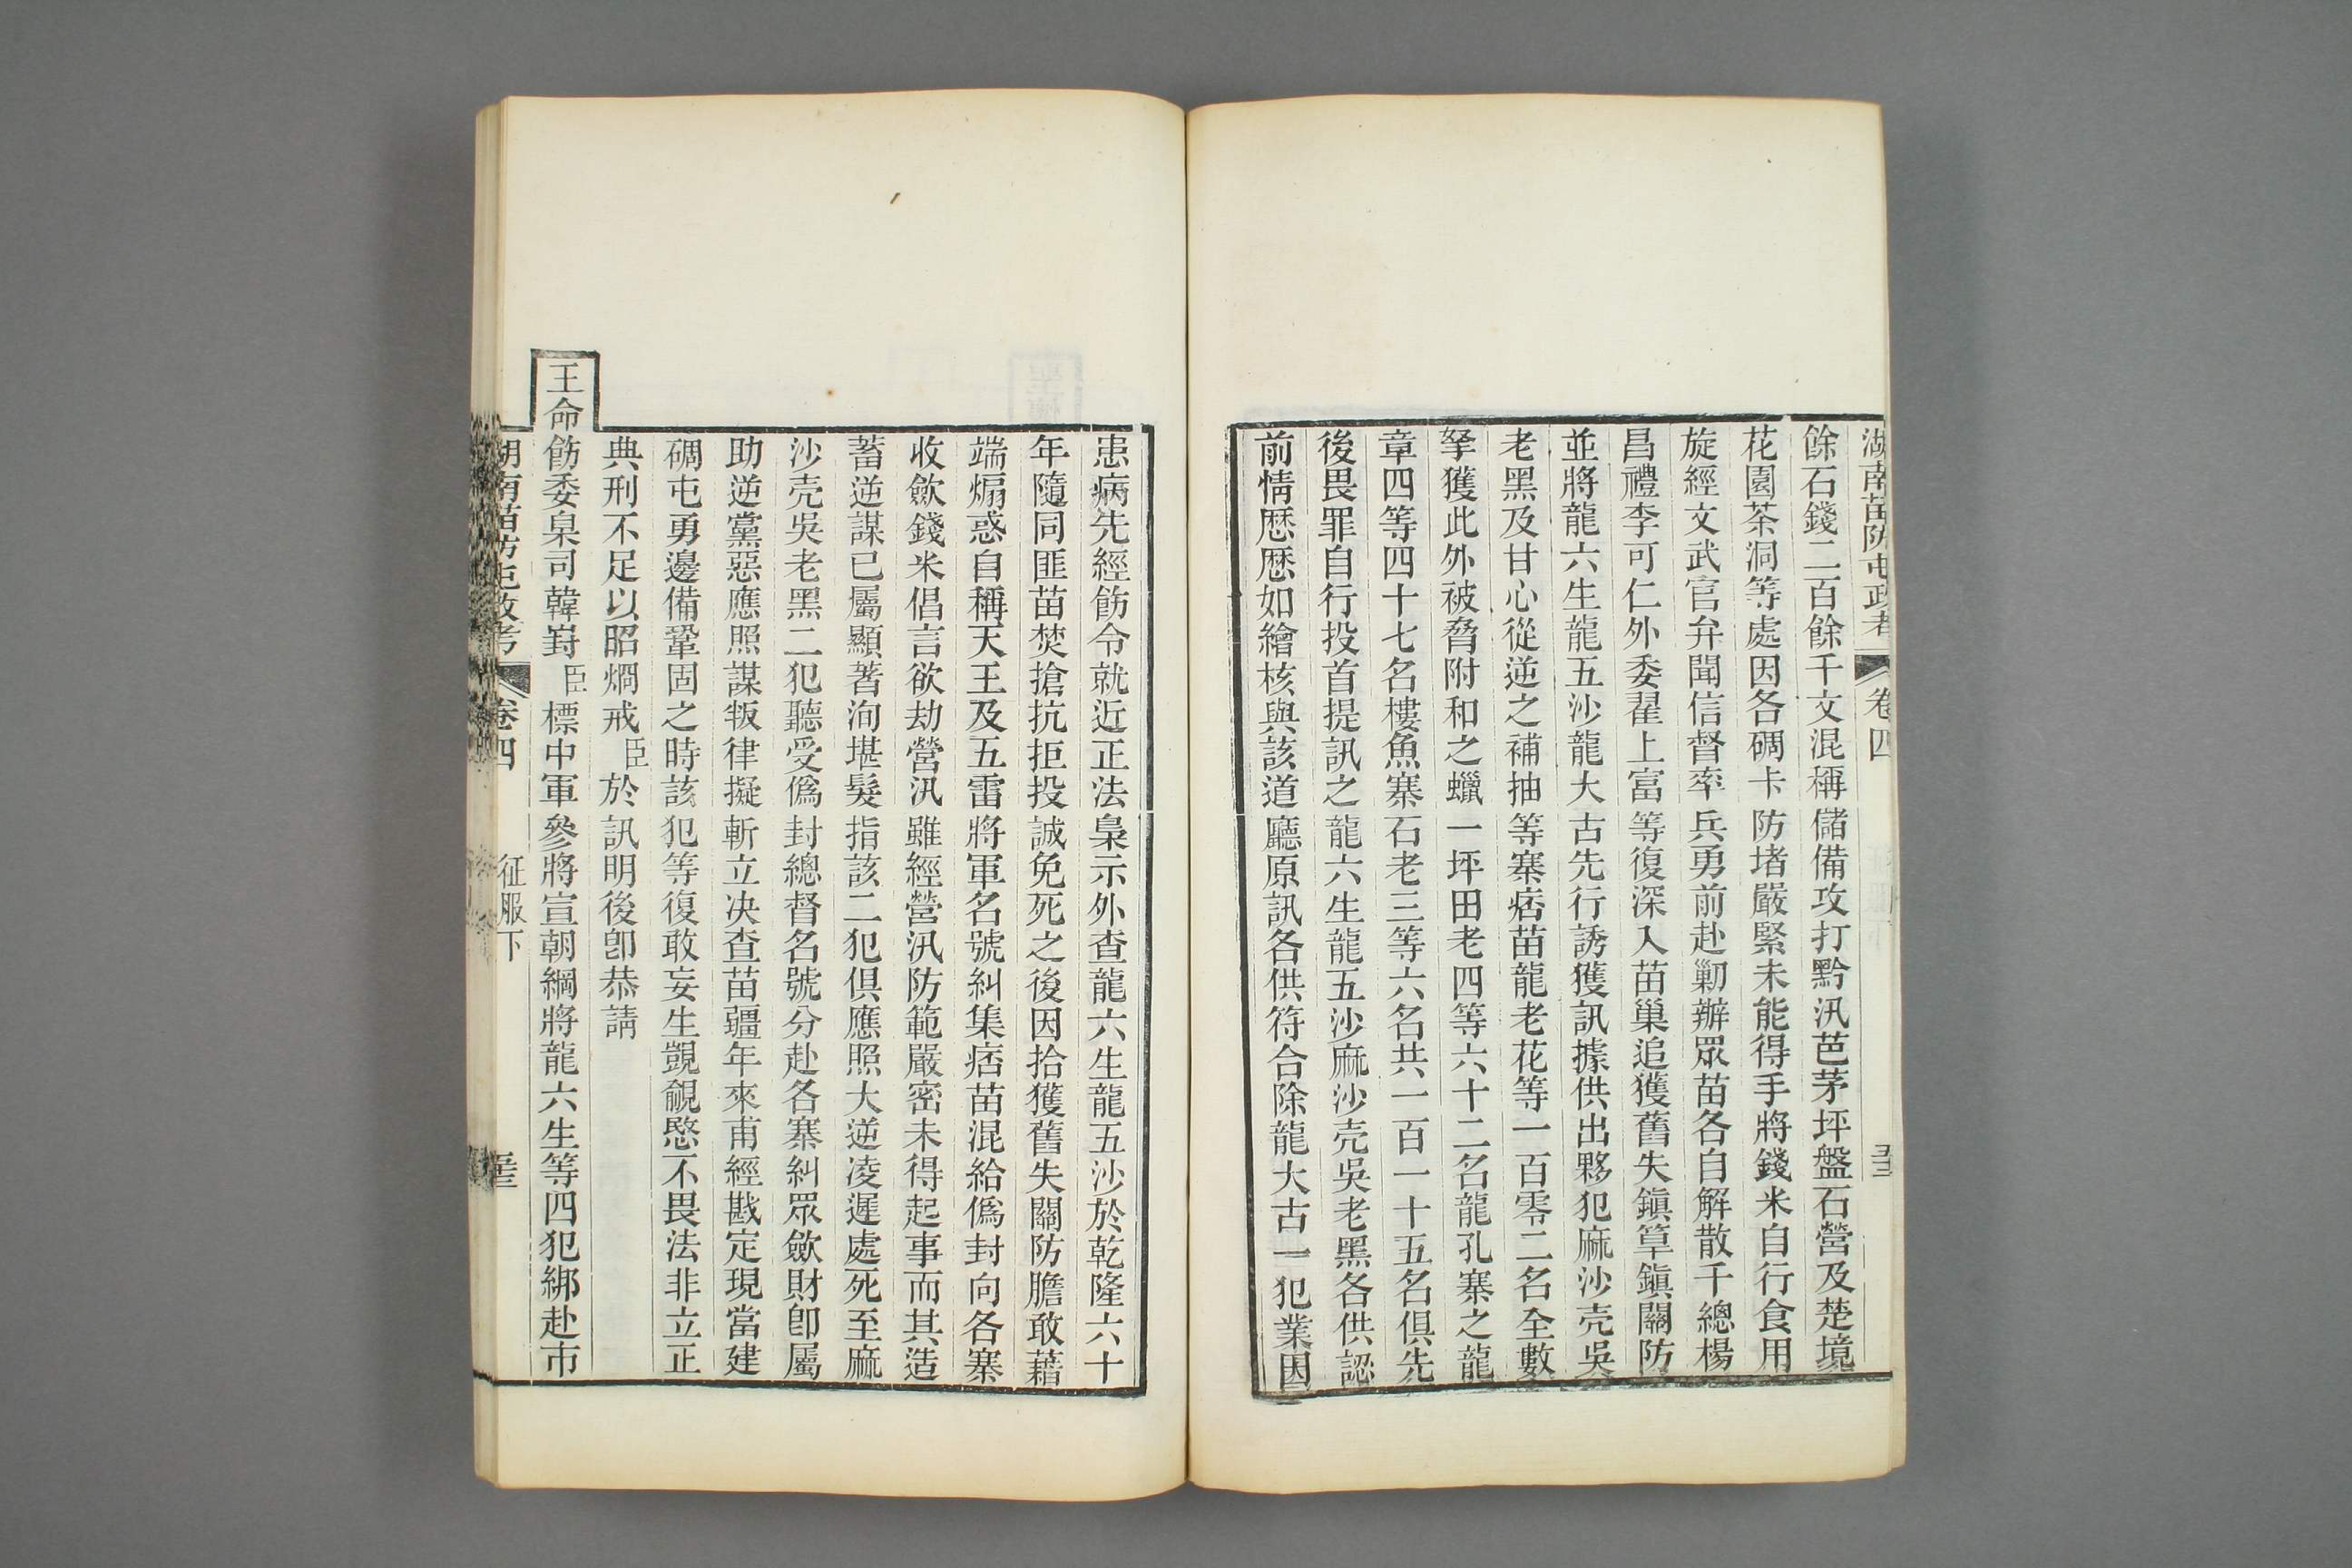 湖南苗防屯政考 卷四
餘石錢二百餘千文混稱儲備攻打黔汛芭茅坪盤石營及楚境
花園茶洞等處因各碉卡防堵嚴緊未能得手將錢米自行食用
旋經文武官弁聞信督率兵勇前赴剿辦眾苗各自解散千總楊
昌禮李可仁外委翟上富等復深入苗巢追獲舊失鎮筸鎮關防
並將龍六生龍五沙龍大古先行誘獲訊據供出夥犯麻沙壳吳
老黑及甘心從逆之補抽等寨痞苗龍老花等一百零二名全數
拏獲此外被脅附和之蠟一坪田老四等六十二名龍孔寨之龍
章四等四十七名樓魚寨石老三等六名共一百一十五名俱先
後畏罪自行投首提訊之龍六生龍五沙麻沙壳吳老黑各供認
前情歷歷如繪核與該道廳原訊各供符合除龍大古一犯業因
患病先經飭令就近正法梟示外查龍六生龍五沙於乾隆六十
年隨同匪苗焚搶抗拒投誠免死之後因拾獲舊失關防膽敢藉
端煽惑自稱天王及五雷將軍名號糾集痞苗混給僞封向各寨
收歛錢米倡言欲劫營汛雖經營汛防範嚴密未得起事而其造
蓄逆謀已屬顯著洵堪髮指該二犯俱應照大逆凌遲處死至麻
沙壳吳老黑二犯聽受僞封總督名號分赴各寨糾眾歛財卽屬
助逆黨惡應照謀叛律擬斬立决查苗疆年來甫經戡定現當建
碉屯勇邊備鞏固之時該犯等復敢妄生覬覦愍不畏法非立正
典刑不足以昭烱戒臣於訊明後卽恭請
王命飭委臬司韓崶臣標中軍參將宣朝綱將龍六生等四犯綁赴市
湖南苗防屯政考 卷四 征服下